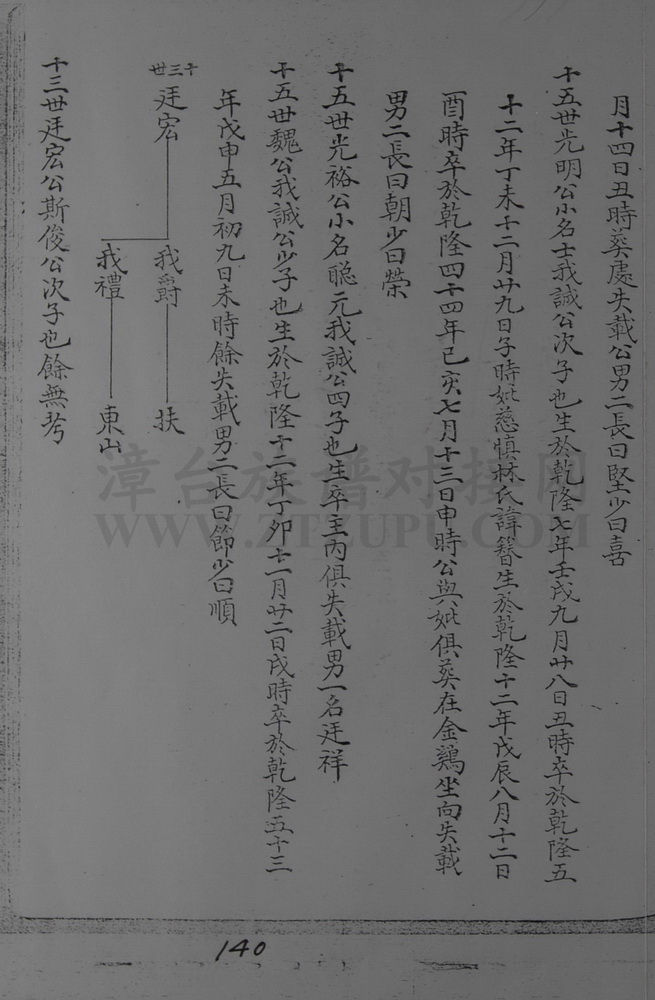 月十四日丑時葬處失載公男二長曰堅少曰喜
十五世光明公小名士我誠公次子也生於乾隆七年壬戌九月廿八日丑時卒於乾隆五
十二年丁未十二月廿九日子時妣慈慎林氏諱簪生於乾隆十二年戊辰八月十二日
酉時卒於乾隆四十四年己亥七月十三日申時公與妣俱葬在金鷄坐向失載
男二長曰朝少曰榮
十五世光裕公小名聰元我誠公四子也生卒主內俱失載男一名廷祥
十五世魏公我誠公少子也生於乾隆十二年丁卯十一月廿二日戌時卒於乾隆五十三
年戊申五月初九日未時餘失載男二長曰節少曰順
十三世
廷宏 我爵 扶
我禮 東山
十三世廷宏公斯俊公次子也餘無考
漳台族谱对接网
WWW.ZTZUPU.COM
140